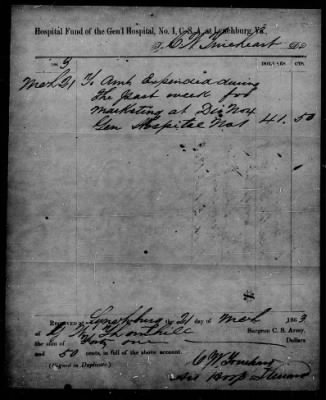 Hospital Fund of the Gen'l Hospital, No. 1, C. S. A., at Lynchburg, Va.
To C W Trueheart Dr
1863 DOLLARS CTS.
Mch 21 To Amt Expended during
the past week for
Marketing at Div No 4
Gen Hospital No 1 41. 50
RECEIVED at Lynchburg the 21 day of Mch 1863
of G W Thornhill Surgeon C. S. Army,
the sum of Forty one Dollars
and 50 cents, in full of the above account.
(Signed in Duplicate.) C W Trueheart
Act Hosp Steward